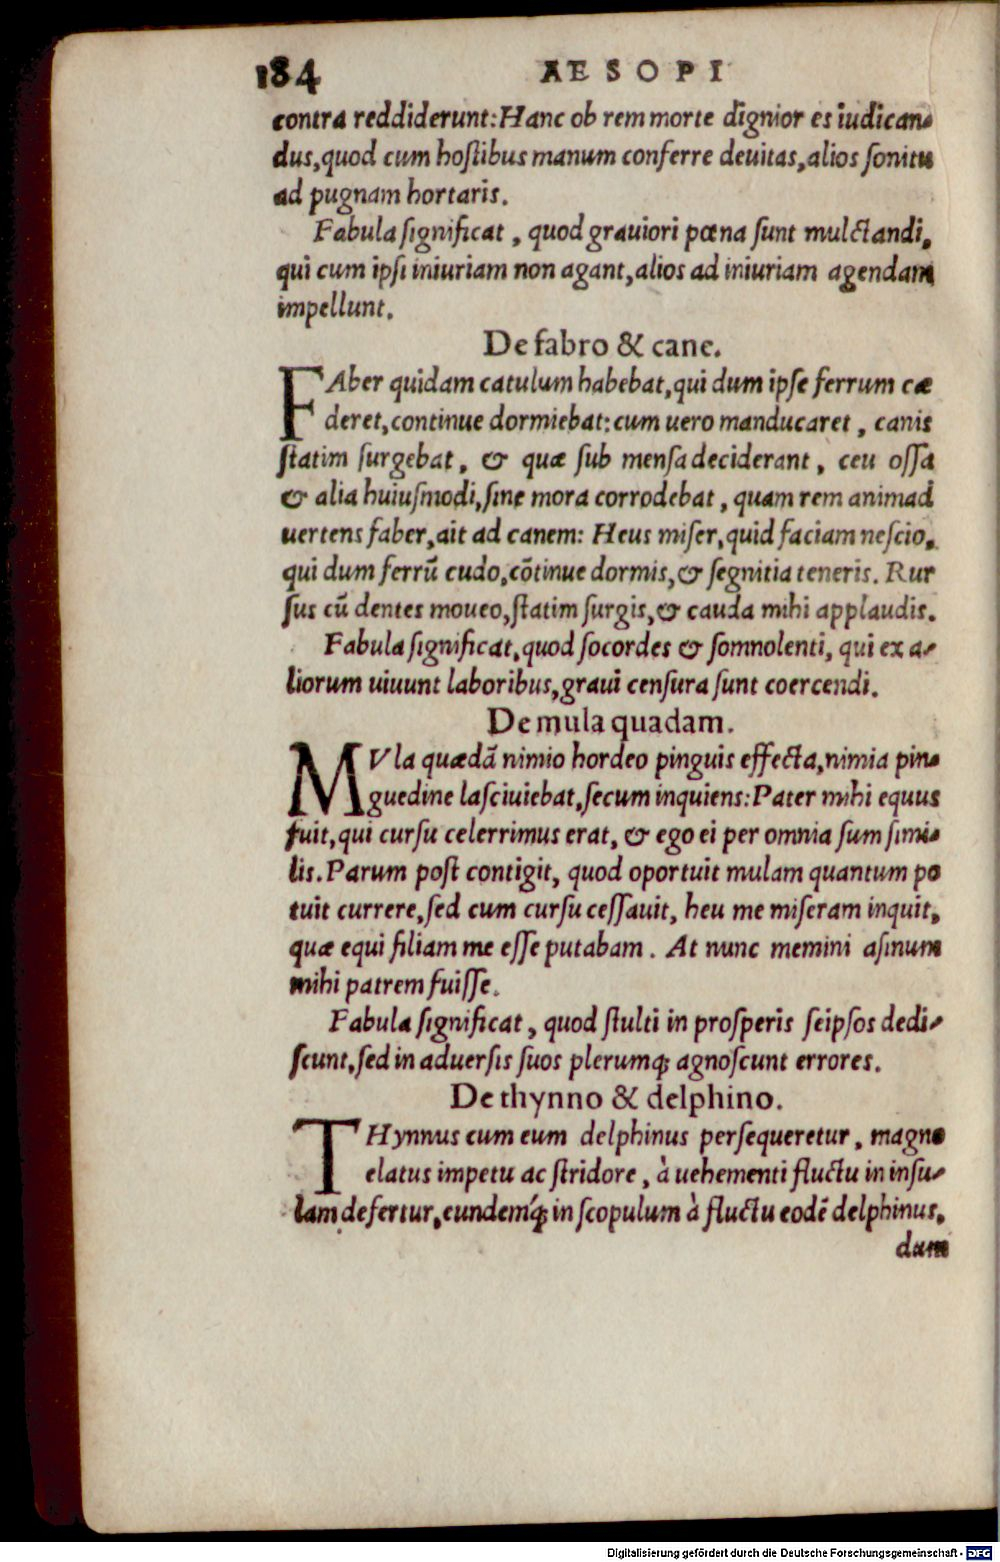 184 AESOPI
contra reddiderunt: Hanc ob rem morte dignior es iudican-
dus, quod cum hoſtibus manum conferre deuitas, alios ſonitu
ad pugnam hortaris.
Fabula ſignificat, quod grauiori pœna ſunt mulctandi,
qui cum ipſi iniuriam non agant, alios ad iniuriam agendam
impellunt.
De fabro & cane.
FAber quidam catulum habebat, qui dum ipſe ferrum cæ
deret, continue dormiebat: cum uero manducaret, canis
ſtatim ſurgebat, & quæ ſub menſa deciderant, ceu oſſa
& alia huiuſmodi, ſine mora corrodebat, quam rem animad
uertens faber, ait ad canem: Heus miſer, quid faciam neſcio,
qui dum ferrū cudo, cōtinue dormis, & ſegnitia teneris. Rur
ſus cū dentes moueo, ſtatim ſurgis, & cauda mihi applaudis.
Fabula ſignificat, quod ſocordes & ſomnolenti, qui ex a-
liorum uiuunt laboribus, graui cenſura ſunt coercendi.
De mula quadam.
MVla quædā nimio hordeo pinguis effecta, nimia pin-
guedine laſciuiebat, ſecum inquiens: Pater mihi equus
fuit, qui curſu celerrimus erat, & ego ei per omnia ſum ſimi-
lis. Parum poſt contigit, quod oportuit mulam quantum po
tuit currere, ſed cum curſu ceſſauit, heu me miſeram inquit,
quæ equi filiam me eſſe putabam. At nunc memini aſinum
mihi patrem fuiſſe.
Fabula ſignificat, quod ſtulti in proſperis ſeipſos dedi-
ſcunt, ſed in aduerſis ſuos plerumq; agnoſcunt errores.
De thynno & delphino.
THynnus cum eum delphinus perſequeretur, magno
elatus impetu ac ſtridore, à uehementi fluctu in inſu-
lam defertur, eundemq́; in ſcopulum à fluctu eodē delphinus,
dum
Digitalisierung gefördert durch die Deutsche Forschungsgemeinschaft - DFG